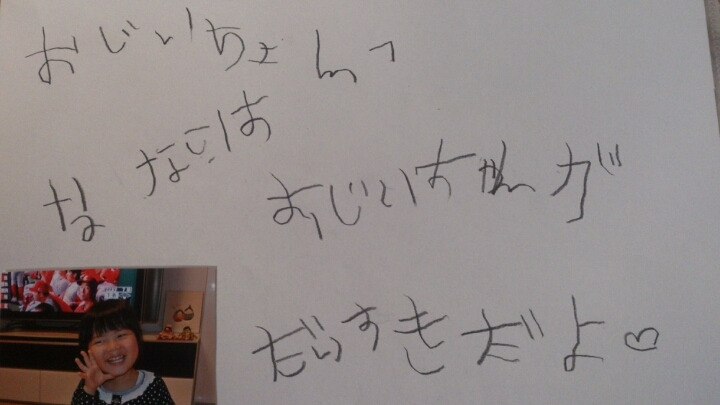 おじいちょんっ
ななこは おじいちゃんが
だいすきだよ♡